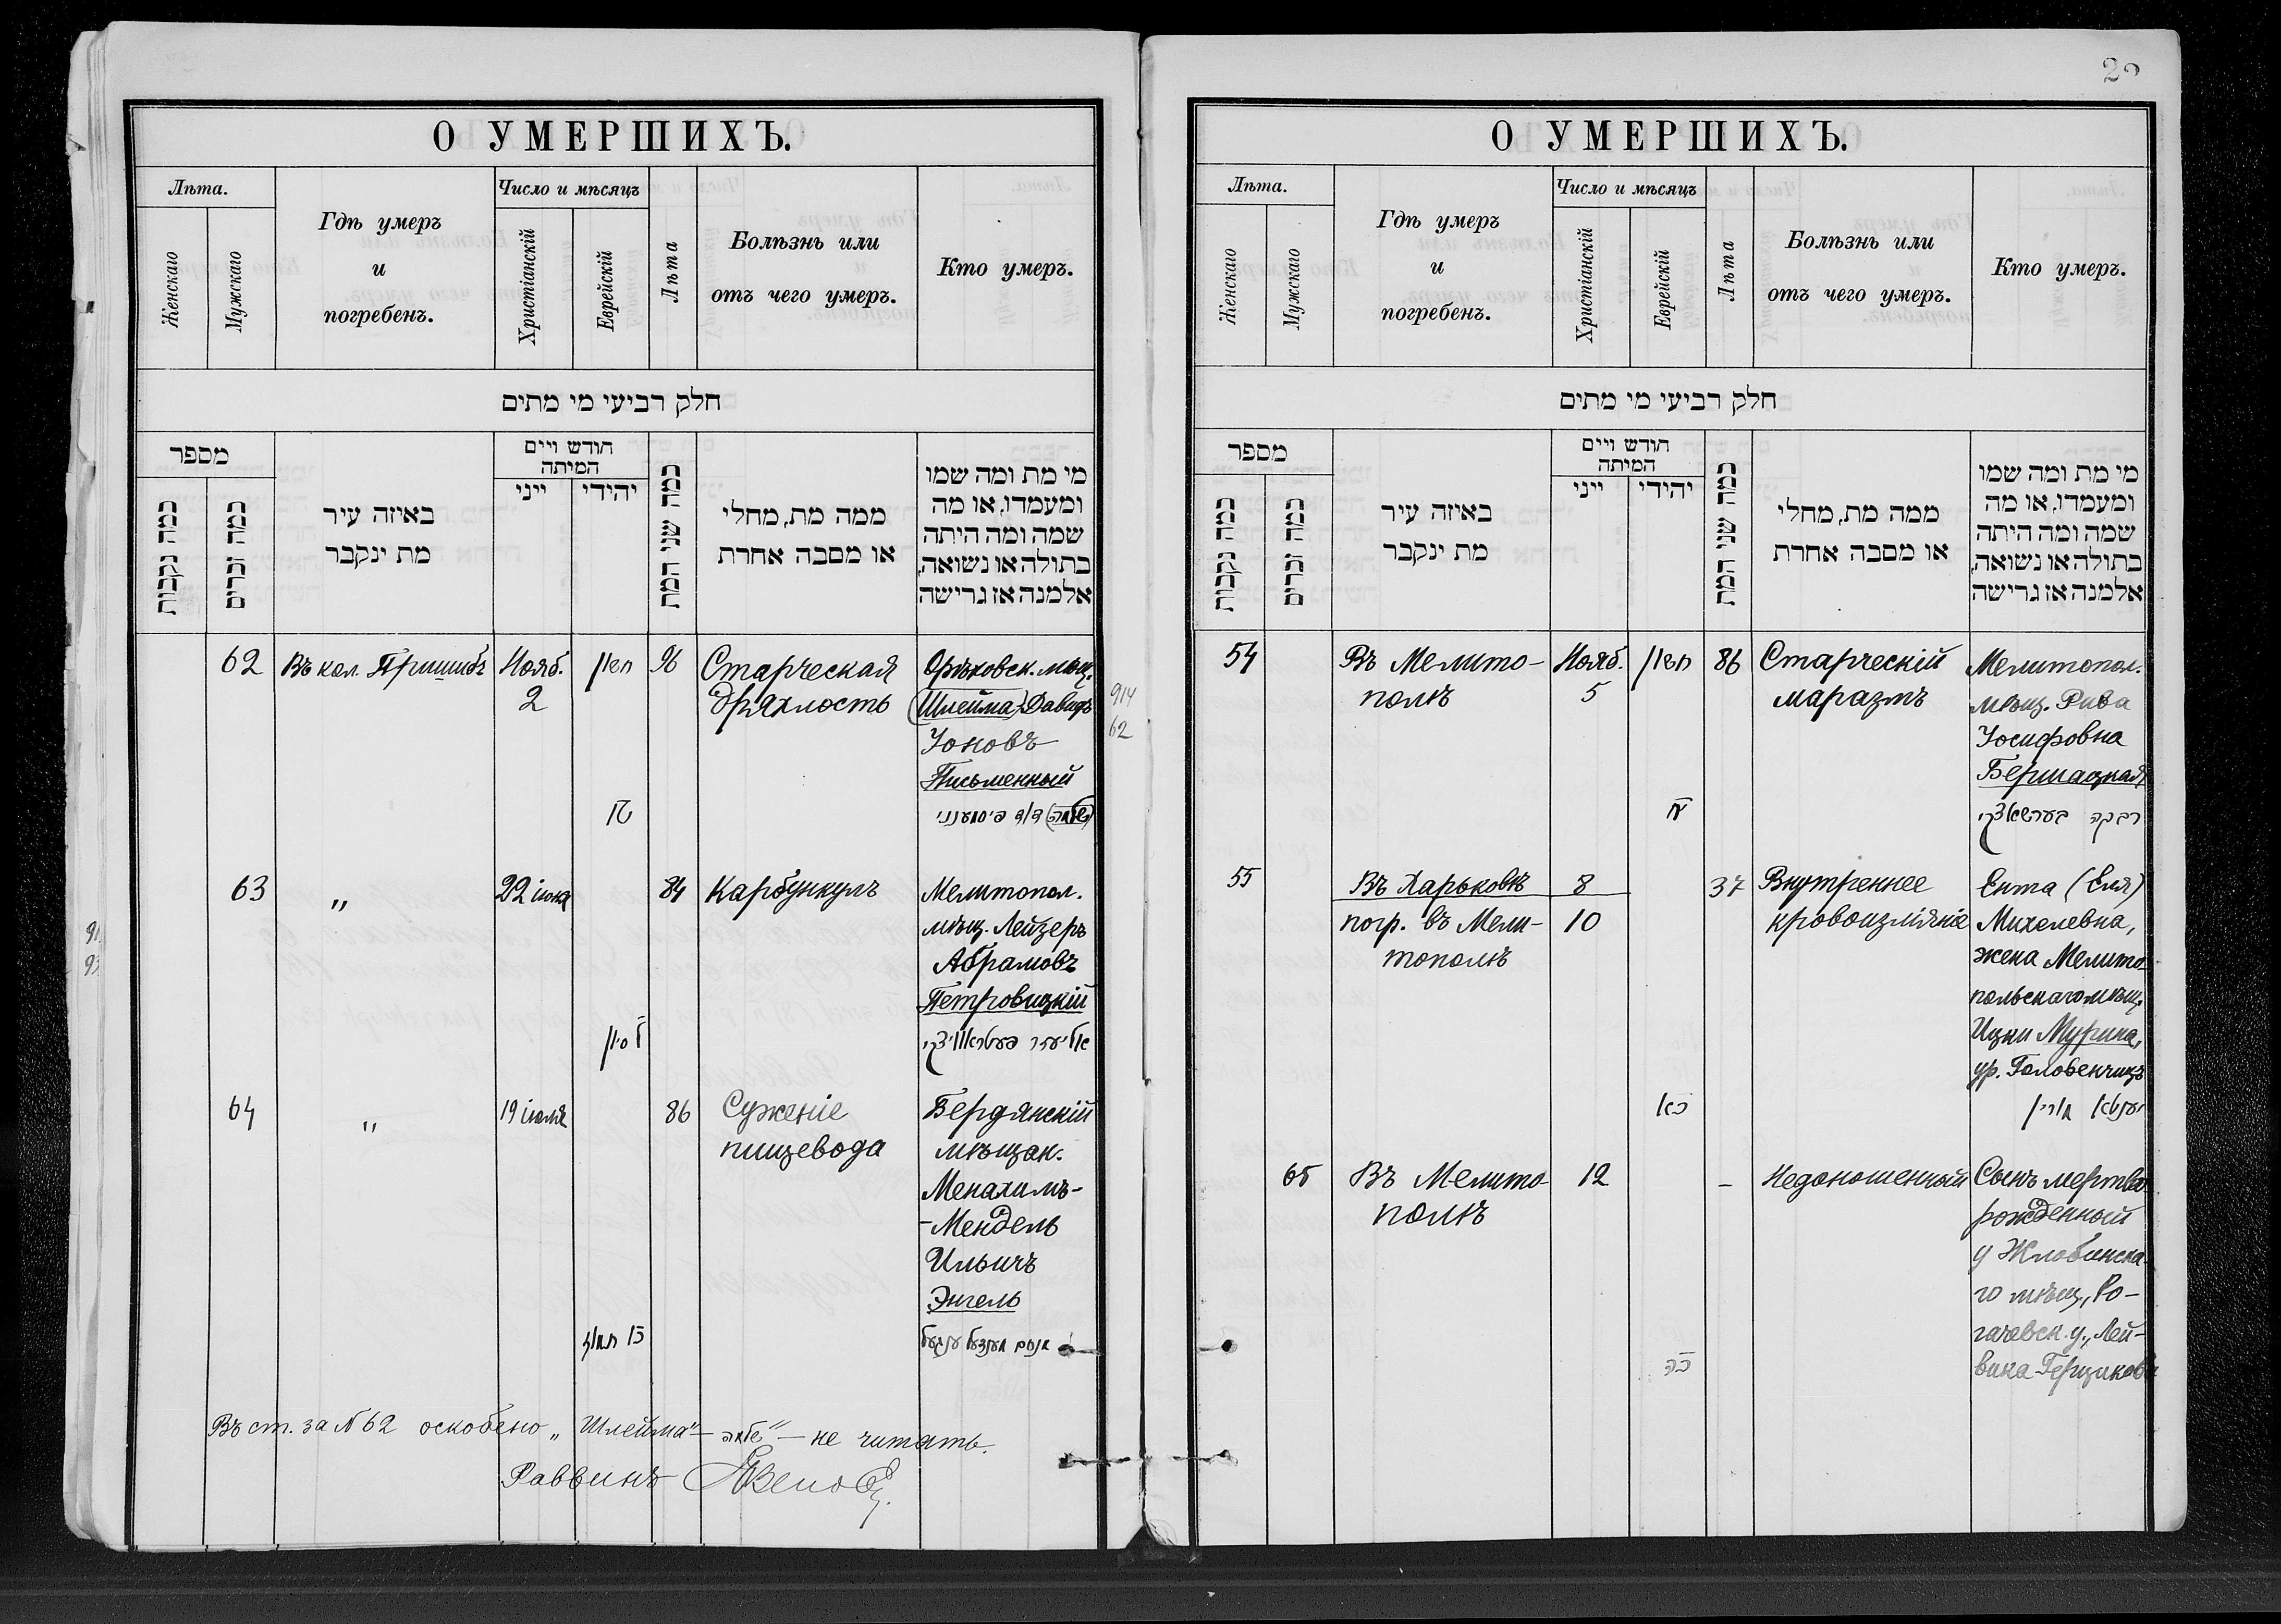 О УМЕРШИХЪ.
Лѣта.
Женскаго
Мужскаго
Гдѣ умеръ
и
погребенъ.
Число и мѣсяцъ
Христіанскій
Еврейскій
Лѣта
Болѣзнь или
отъ чего умеръ.
Кто умеръ.
חלק רביעי מי מתים
מספר
כמה נקבות
כמה זכרים
באיזה עיר
מת ינקבר
חודש ויים
המיתה
ייני
יהודי
כמה שני המת
ממה מת, מחלי
או מסבה אחרת
מי מת ומה שמו
ומעמדו, או מה
שמה ומה היתה
בתולה או נשואה,
אלמנה אז גרישה
62
Въ кол. Пришибъ
Нояб.
2
חשון
96
Старческая
дряхлость
Орѣховск. мѣщ.
(Шлейма) Давидъ
Іоновъ
Письменный
914
62
63
"
22 іюня
84
Карбункулъ
Мелитопол.
мѣщ. Лейзеръ
Абрамовъ
Петровицкій
סיון
אליעזר פעטראוויצקי
64
"
19 іюля
86
Суженіе
пищевода
Бердянскій
мѣщан.
Менахимъ-
-Мендель
Ильичъ
Энгель
מנחם מענדעל ענגעל
Въ ст. за N 62 оскоблено „Шлейма" — שלמה" — не читать.
Раввинъ
О УМЕРШИХЪ.
Лѣта.
Женскаго
Мужскаго
Гдѣ умеръ
и
погребенъ.
Число и мѣсяцъ
Христіанскій
Еврейскій
Лѣта
Болѣзнь или
отъ чего умеръ.
Кто умеръ.
חלק רביעי מי מתים
מספר
כמה נקבות
כמה זכרים
באיזה עיר
מת ינקבר
חודש ויים
המיתה
ייני
יהודי
כמה שני המת
ממה מת, מחלי
או מסבה אחרת
מי מת ומה שמו
ומעמדו, או מה
שמה ומה היתה
בתולה או נשואה,
אלמנה אז גרישה
54
Въ Мелито-
полѣ
Нояб.
5
חשון
86
Старческій
маразмъ
Мелитопол.
мѣщ. Рива
Іосифовна
Бершацкая
יח
רבקה בערשאצקי
55
Въ Харьковѣ
погр. въ Мели-
тополѣ
8
10
37
Внутреннее
кровоизліяніе
Ента (Еня)
Михелевна,
жена Мелито-
польскаго мѣщ.
Ицки Мурина,
ур. Головенчицъ
כא
יענטא מורין
65
Въ Мелито-
полѣ
12
-
Недоношенный
Сынъ мертво-
рожденный
у Жлобинска-
го мѣщ., Ро-
гачевск. у., Лей-
вика Герцикова
כה